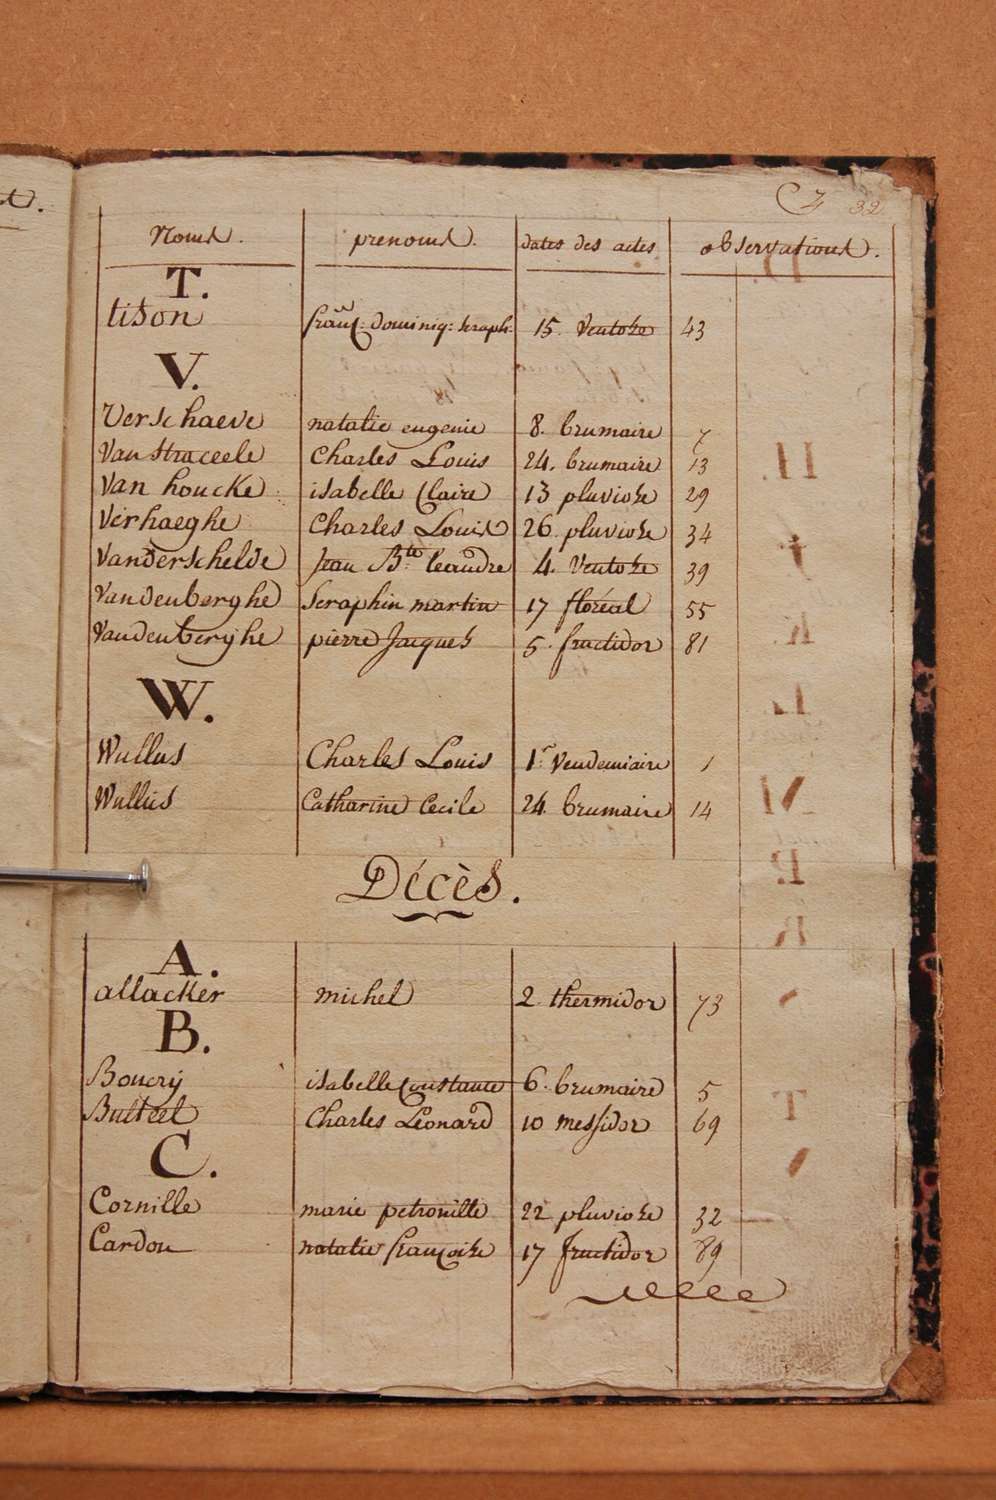 32
Noms. prenoms. dates des actes observations.
T.
tison franç: dominiq: seraph: 15. Ventose 43
V.
Verschaeve natalie eugenie 8. brumaire 7
Van Straceele Charles Louis 24. brumaire 13
Van houcke isabelle Claire 13 pluviose 29
Verhaeghe Charles Louis 26 pluviose 34
Vanderschelde Jean Bte. leandre 4. Ventose 39
Vandenberghe Seraphin martin 17 floréal 55
Vandenberghe pierre Jacques 5. fructidor 81
W.
Wullus Charles Louis 1r. Vendemiaire 1
Wullus Catharine Cecile 24. brumaire 14
Décès.
A.
allacker michel 2 thermidor 73
B.
Boucrÿ isabelle Constance 6. brumaire 5
Bulteel Charles Léonard 10 messidor 69
C.
Cornille marie petronille 22 pluviose 32
Cardon natalie françoise 17 fructidor 89